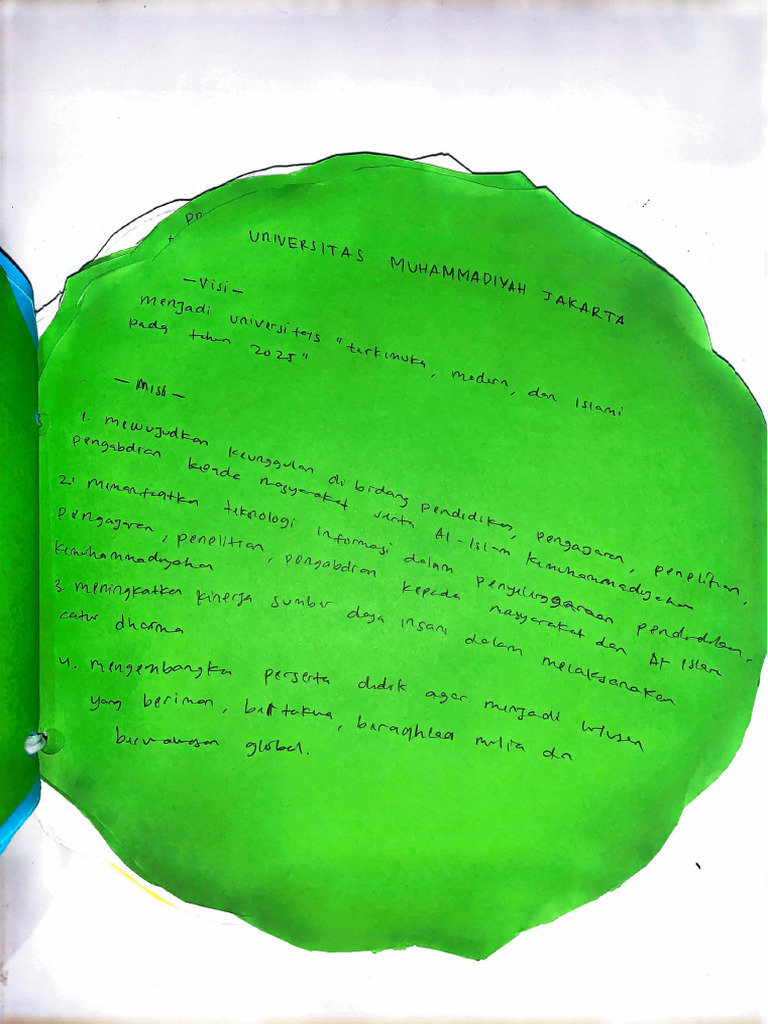 pn
+
UNIVERSITAS MUHAMMADIYAH JAKARTA
– Visi –
menjadi universitas "terkemuka, modern, dan Islami
pada tahun 2025"
– Misi –
1. mewujudkan keunggulan di bidang pendidikan, pengajaran, penelitian,
pengabdian kepada masyarakat serta Al-Islam kemuhammadiyahan
2. Memanfaatkan teknologi informasi dalam penyelenggaraan pendidikan,
pengajaran, penelitian, pengabdian kepada masyarakat dan Al Islam
kemuhammadiyahan
3. meningkatkan kinerja sumber daya insani dalam melaksanakan
catur dharma
4. mengembangka perserta didik agar menjadi
yang beriman, bertakwa, beraqhlaq mulia dn
berwawasan global.